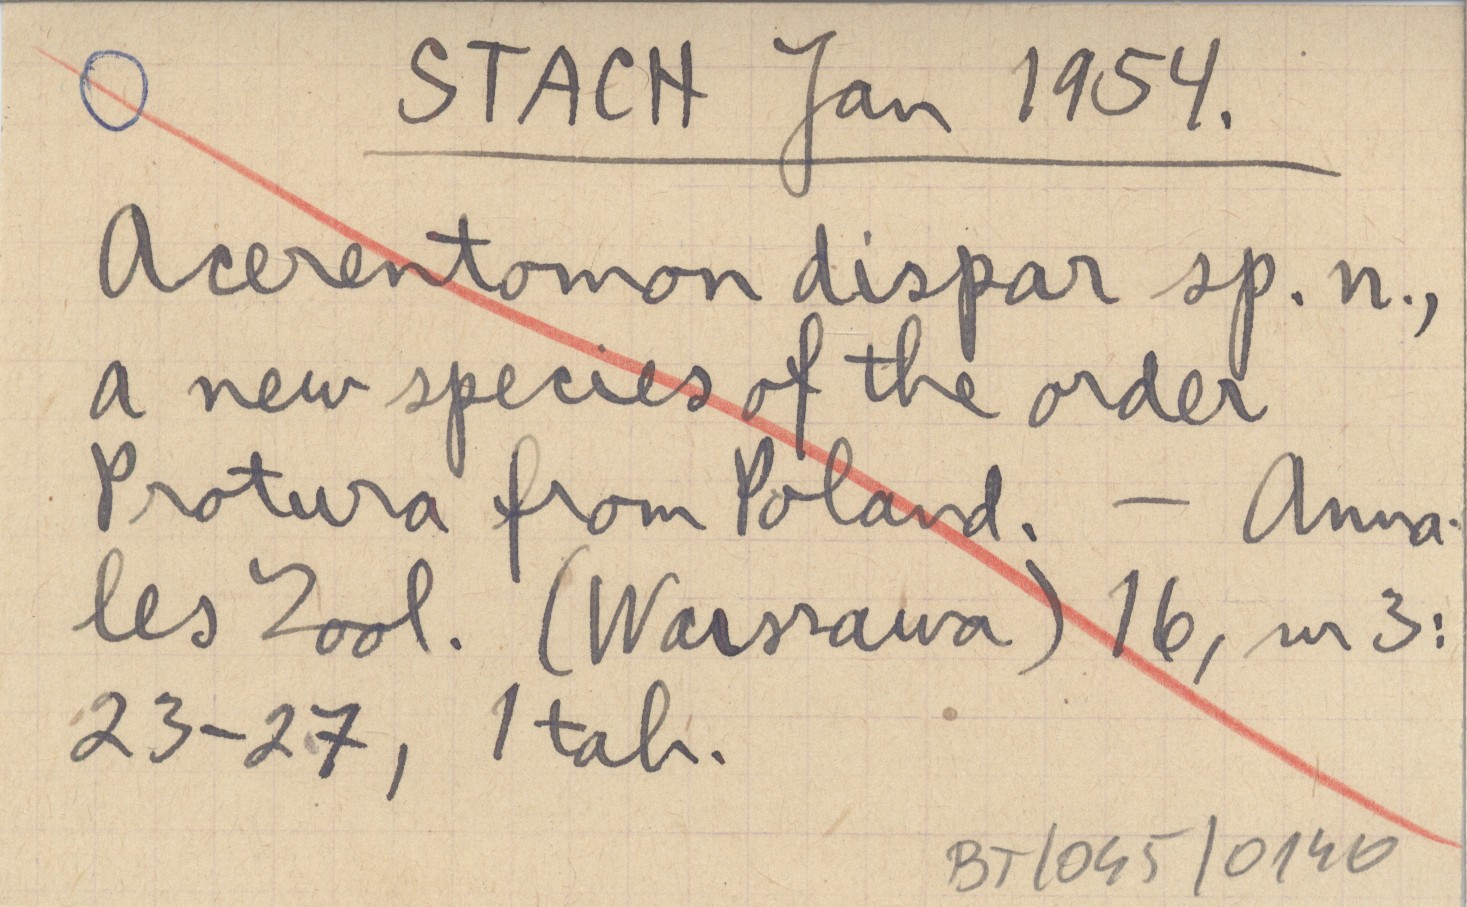 STACH Jan 1954.
Acerentomon dispar sp. n.,
a new species of the order
Protura from Poland. — Anna-
les Zool. (Warszawa) 16, nr 3:
23-27, 1 tab.
BT/045/0140